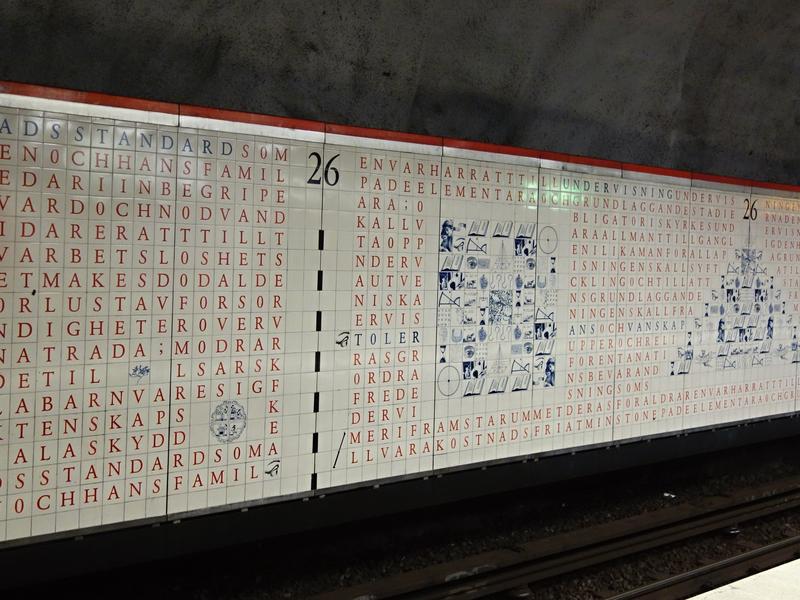 ADSSTANDARDSOM
ENOCHHANSFAMIL
EDARIINBEGRIPE
VARDOCHNODVAND
IDARERATTTILLT
VARBETSLOSHETS
ETMAKESDODALDE
ORLUSTAVFORSOR
NDIGHETEROVERV
NATRADA;MODRAR
DETIL LSARSK
LABARNVARESIGF
KTENSKAPS K
ALASKYDD E
DSSTANDARDSOMA
OCHHANSFAMIL
26
ENVARHARRATTTILLUNDERVISNINGUNDERVIS
PADEELEMENTARAOCHGRUNDLAGGANDESTADIE
ARA;O BLIGATORISKYRKESUND
KALLV ARAALLMANTTILLGANGL
TAOPP ENLIKAMANFORALLA
NDERV ISNINGENSKALLSYFT
AUTVE CKLINGOCHTILLA
NISKA NSGRUNDLAGGANDE
ERVIS
TOLER ANSOCHVANSKAP
RASGR UPPEROCHRELI
ORDRA FORENTANATI
FREDE NSBEVARAND
DERVI SNINGSOMS
MERIFRAMSTARUMMETDERASFORALDRARENVARHARRATTTIL
LLVARAKOSTNADSFRIATMINSTONEPADEELEMENTARAOCHGR
26